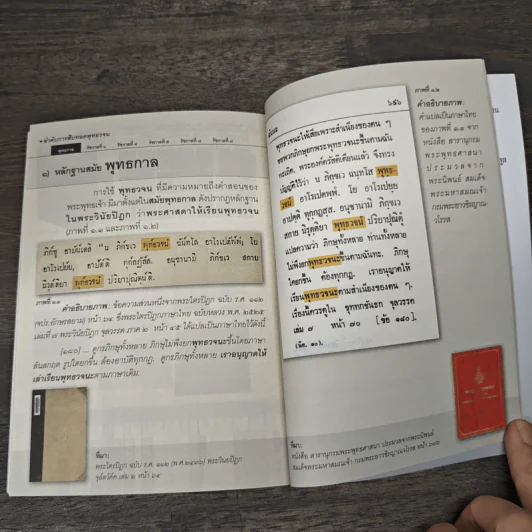 ลำดับการสืบทอดพุทธวจน
พุทธกาล รัชกาลที่ ๑ รัชกาลที่ ๔ รัชกาลที่ ๕
๑) หลักฐานสมัย พุทธกาล
การใช้ พุทธวจน ที่มีความหมายถึงคำสอนของ
พระพุทธเจ้า มีมาตั้งแต่ในสมัยพุทธกาล ดังปรากฏหลักฐาน
ในพระวินัยปิฎก ว่าพระศาสดาให้เรียนพุทธวจน
(ภาพที่ ๑.๑ และภาพที่ ๑.๒)
พุทฺธวจนํ
พุทฺธวจนํ
ภาพที่ ๑.๑
คำอธิบายภาพ: ข้อความส่วนหนึ่งจากพระไตรปิฎก ฉบับ ร.ศ. ๑๑๒
เล่มที่ ๗ พระวินัยปิฎก จุลวรรค ภาค ๒ หน้า ๔๕ ได้แปลเป็นภาษาไทยไว้ดังนี้
[๑๘๐] ... ดูกรภิกษุทั้งหลาย ภิกษุไม่พึงยกพุทธวจนะขึ้นโดยภาษา
สันสกฤต รูปใดยกขึ้น ต้องอาบัติทุกกฏ. ดูกรภิกษุทั้งหลาย เราอนุญาตให้
เล่าเรียนพุทธวจนะตามภาษาเดิม.
ที่มา:
พระไตรปิฎก ฉบับ ร.ศ. ๑๑๒ (พ.ศ.๒๔๓๖) พระวินัยปิฎก
จุลวัคค์ เล่ม ๒ หน้า ๖๔
พุทธวจนะให้เสียเพราะสำเนียงของตน ๆ
ขอพวกภิกษุยกพระพุทธวจนะขึ้นตามฉัน
ทะเถิด. พระองค์ตรัสติเตียนแล้ว จึงทรง
บัญญัติไว้ว่า น ภิกฺขเว ฉนฺทโส พุทฺธ-
วจนํ อาโรเปตพฺพํ. โย อาโรเปยฺย
อาปตฺติ ทุกฺกฏสฺส. อนุชานามิ ภิกฺขเว
สกาย นิรุตฺติยา พุทฺธวจนํ ปริยาปุณิตุํ
แปลความว่า ภิกษุทั้งหลาย ท่านทั้งหลาย
ไม่พึงยกพุทธวจนะขึ้นตามฉันทะ. ภิกษุ
ใดยกขึ้น ต้องทุกกฏ. เราอนุญาตให้
เรียนพุทธวจนะตามสำเนียงของตน ๆ.
เรื่องนี้ควรดูใน ขุททกขันธก จุลวรรค
เล่ม ๗ หน้า ๗๐ [ข้อ ๑๘๐].
ภาพที่ ๑.๒
คำอธิบายภาพ:
คำแปลเป็นภาษาไทย
ของภาพที่ ๑.๑ จาก
หนังสือ สารานุกรม
พระพุทธศาสนา
ประมวลจาก
พระนิพนธ์
สมเด็จพระมหาสมณเจ้า
กรมพระยาวชิรญาณ-
วโรรส
ที่มา:
หนังสือ สารานุกรมพระพุทธศาสนา ประมวลจากพระนิพนธ์
สมเด็จพระมหาสมณเจ้า กรมพระยาวชิรญาณวโรรส หน้า